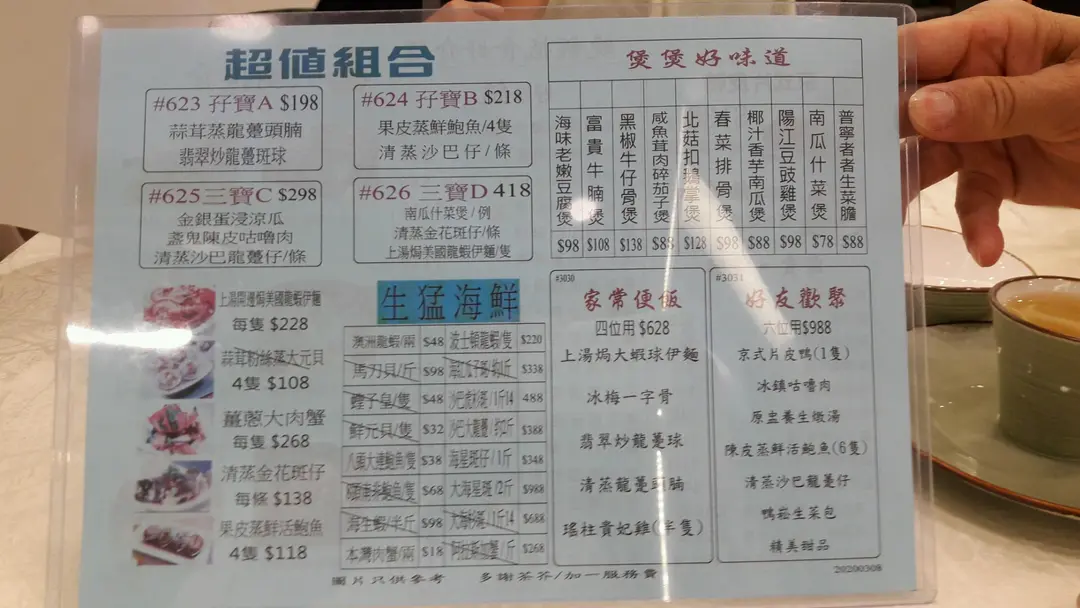 超值組合
#623 孖寶A $198
蒜茸蒸龍躉頭腩
翡翠炒龍躉斑球
#624 孖寶B $218
果皮蒸鮮鮑魚/4隻
清蒸沙巴仔/條
#625 三寶C $298
金銀蛋浸涼瓜
盞鬼陳皮咕嚕肉
清蒸沙巴龍躉仔/條
#626 三寶D 418
南瓜什菜煲/例
清蒸金花斑仔/條
上湯焗美國龍蝦伊麵/隻
煲煲好味道
海味老嫩豆腐煲 $98
富貴牛腩煲 $108
黑椒牛仔骨煲 $138
咸魚茸肉碎茄子煲 $88
北菇扣鵝掌煲 $128
春菜排骨煲 $98
椰汁香芋南瓜煲 $88
陽江豆豉雞煲 $98
南瓜什菜煲 $78
普寧者者生菜膽 $88
上湯開邊焗美國龍蝦伊麵
每隻 $228
蒜茸粉絲蒸大元貝
4隻 $108
薑蔥大肉蟹
每隻 $268
清蒸金花斑仔
每條 $138
果皮蒸鮮活鮑魚
4隻 $118
生猛海鮮
澳洲龍蝦/兩 $48 波士頓龍蝦/隻 $220
馬刀貝/斤 $98 $338
蟶子皇/隻 $48 488
鮮元貝/隻 $32 沙巴大龍躉/約2斤 $388
八頭大連鮑魚/隻 $38 海星斑仔/1斤 $348
$68 大海星斑/2斤 $988
海生蝦/半斤 $98 $688
本灣肉蟹/兩 $18 阿拉斯加蟹/斤 $268
#3030
家常便飯
四位用 $628
上湯焗大蝦球伊麵
冰梅一字骨
翡翠炒龍躉球
清蒸龍躉頭腩
瑤柱貴妃雞(半隻)
#3031
好友歡聚
六位用$988
京式片皮鴨(1隻)
冰鎮咕嚕肉
原盅養生燉湯
陳皮蒸鮮活鮑魚(6隻)
清蒸沙巴龍躉仔
鴨崧生菜包
精美甜品
圖片只供參考 多謝茶芥/加一服務費
20200308